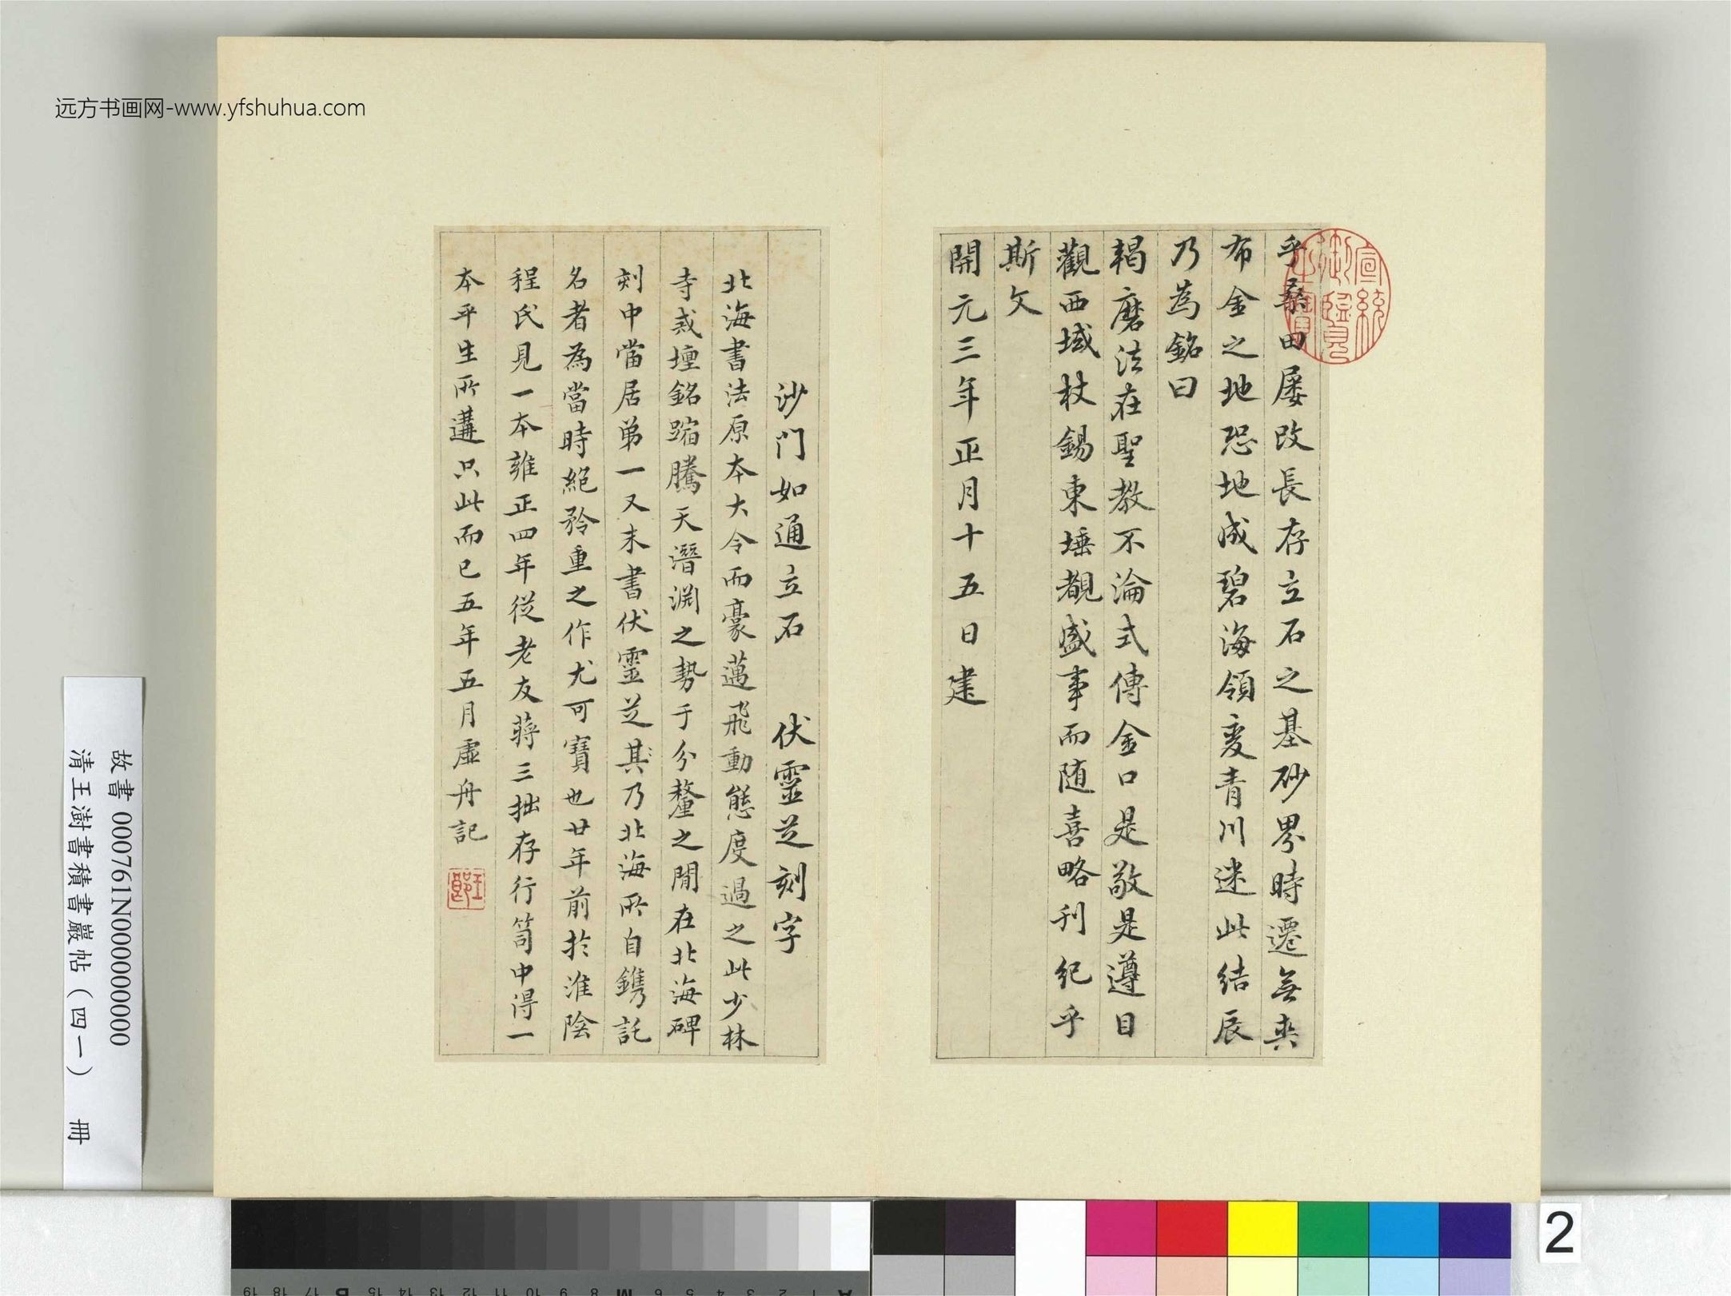 远方书画网-www.yfshuhua.com
乎桑田屡改長存立石之基砂界時遷無爽
布金之地恐地成碧海領变青川迷此結辰
乃為銘曰
羯磨法在聖教不淪式傳金口是敬是遵目
觀西域杖錫東埵覩盛事而随喜略刊紀乎
斯文
開元三年正月十五日建
沙门如通立石 伏靈芝刻字
北海書法原本大令而豪邁飛動態度過之此少林
寺戒壇銘踏騰天潛淵之勢于分釐之間在北海碑
刻中當居弟一又末書伏靈芝其乃北海所自鐫託
名者為當時絕矜重之作尤可寶也廿年前於淮陰
程氏見一本雍正四年從老友蔣三拙存行笥中得一
本平生所遘只此而已五年五月虛舟記
宣統御覽之寶
故書 000761N000000000
清王澍書積書巖帖（四一） 冊
2